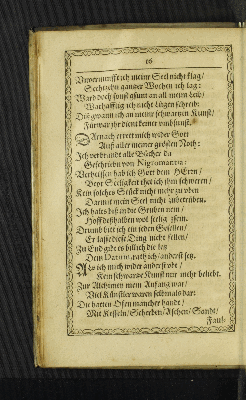 16
Unvernunfft ich meine Seel nicht klag/
Sechzehn gantzer Wochen ich lag:
Ward doch sonst gsunt an all meim Leib/
Warhafftig ich nicht Lügen schreib.
Diß gwann ich an meiner schwartzen Kunst/
Fürwar ihr dient keiner umbsunst.
Darnach errett mich wider Gott
Auß aller meiner grossen Noth:
Ich verbrandt alle Bücher da
Geschriebn von Nigromantia:
Verheissen hab ich Gott dem HErrn/
Beyr Seligkeit thet ich ihm schweren/
Kein solches Stück nicht mehr zu oben
Darmit mein Seel nicht zubetrüben.
Ich halts biß an die Gruben nein/
Hoff deßhalben wol seelig sein.
Drumb bitt ich ein jeden Gesellen/
Er lasse diese Ding nicht fellen/
Zu End gibt es böslich die letz
Dem Datum, rath ich/anderst setz.
Als ich mich wider anderst obt/
Kein schwartze Kunst mir mehr beliebt.
Zur Alchimen mein Anfang war/
Viel Künstler waren selbmals dar:
Die hatten Ofen mancher handt/
Mit Kesseln/Scherben/Aschen/Sandt/
Faul